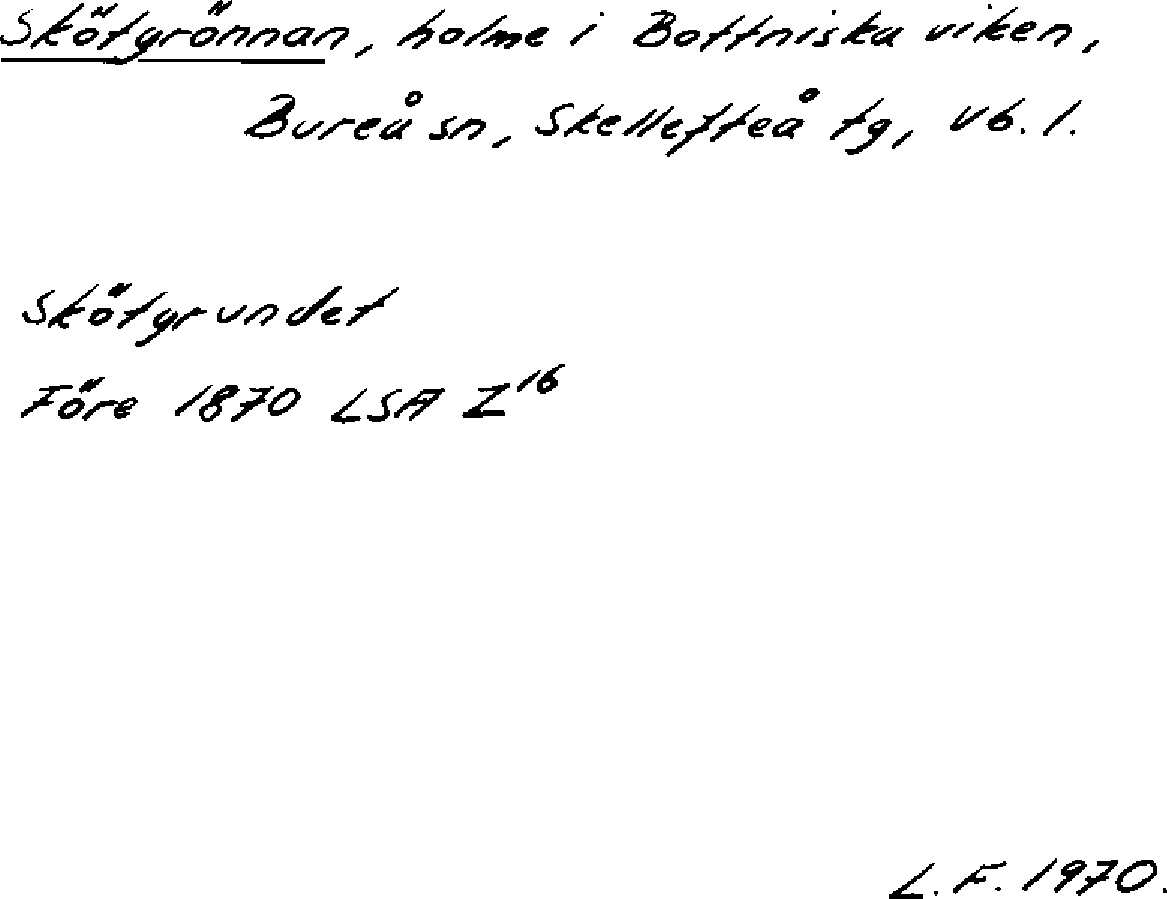 Skötgrönnan, holme i Bottniska viken,
Bureå sn, Skellefteå tg, Vb. l.
Skötgrundet
Före 1870 LSA Z16
L. F. 1970.